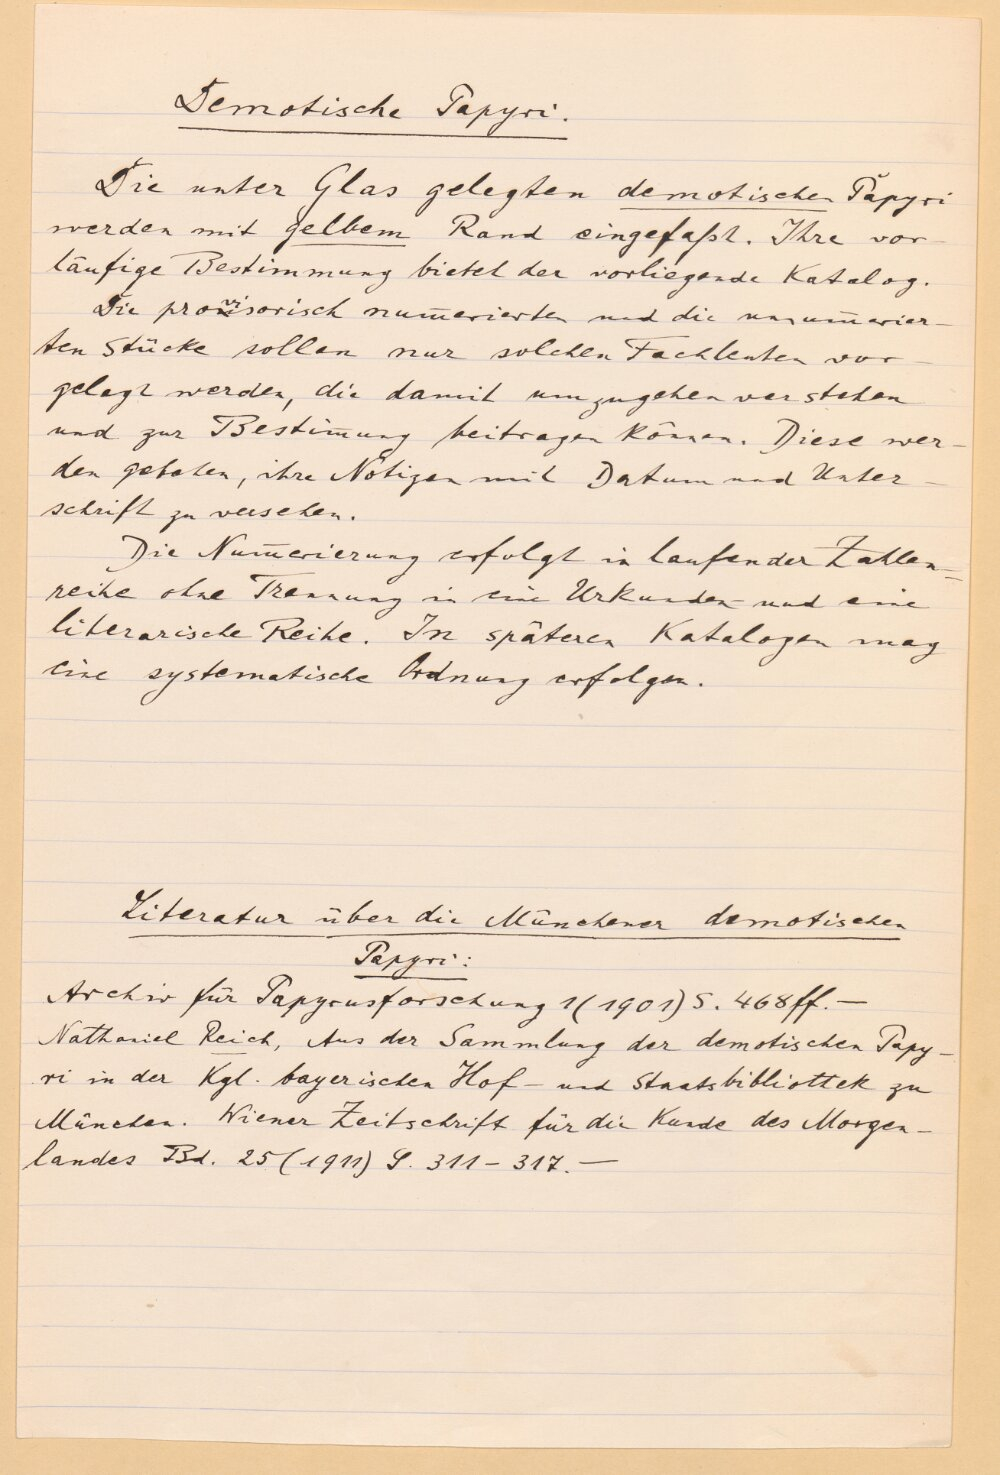 Demotische Papyri.
Die unter Glas gelegten demotischen Papyri
werden mit gelbem Rand eingefaßt. Ihre vor-
läufige Bestimmung bietet der vorliegende Katalog.
Die provisorisch num̅erierten und die unnum̅erier-
ten Stücke sollen nur solchen Fachleuten vor-
gelegt werden, die damit umzugehen verstehen
und zur Bestim̅ung beitragen können. Diese wer-
den gebeten, ihre Notizen mit Datum und Unter-
schrift zu versehen.
Die Num̅erierung erfolgt in laufender Zahlen-
reihe ohne Trennung in eine Urkunden- und eine
literarische Reihe. In späteren Katalogen mag
eine systematische Ordnung erfolgen.
Literatur über die Münchener demotischen
Papyri:
Archiv für Papyrusforschung 1 (1901) S. 468ff. —
Nathaniel Reich, Aus der Sammlung der demotischen Papy-
ri in der Kgl. bayerischen Hof- und Staatsbibliothek zu
München. Wiener Zeitschrift für die Kunde des Morgen-
landes Bd. 25 (1911) S. 311-317. —